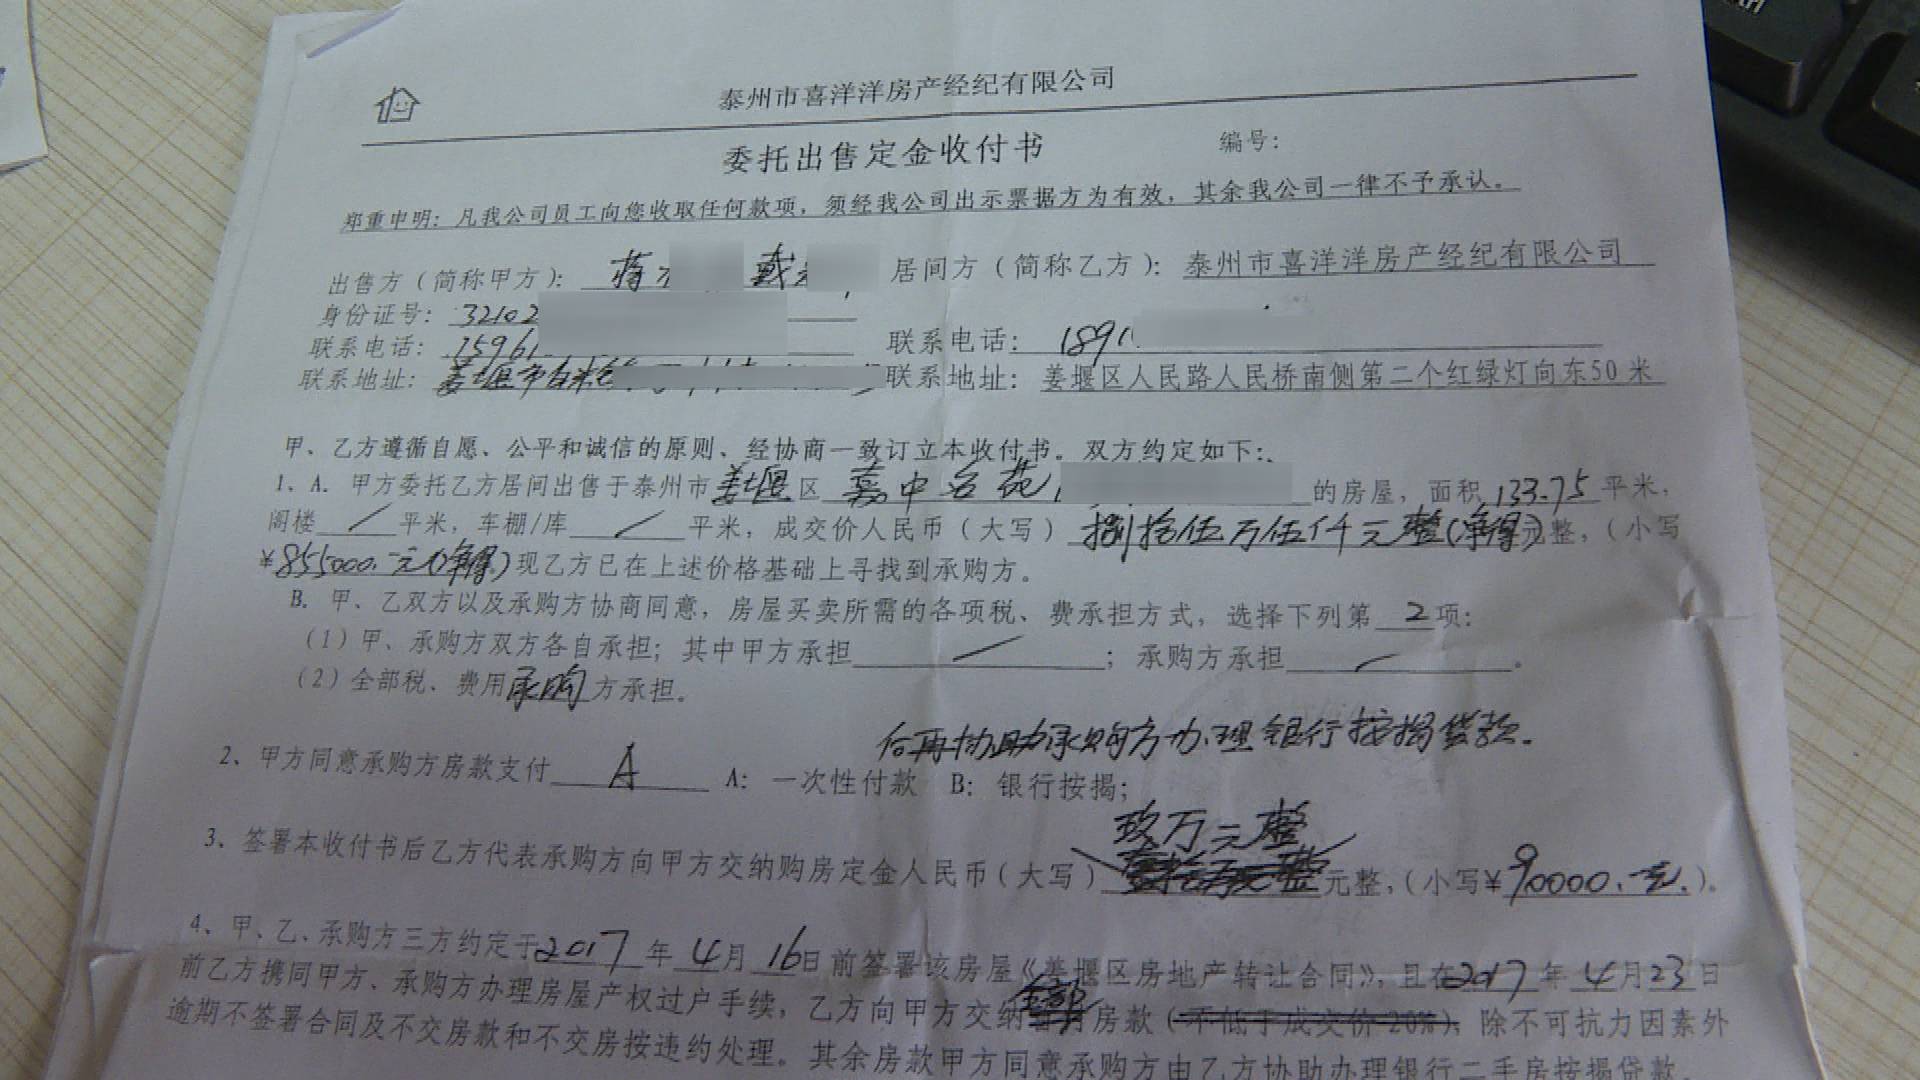 泰州市喜洋洋房产经纪有限公司
委托出售定金收付书 编号：
郑重申明：凡我公司员工向您收取任何款项，须经我公司出示票据方为有效，其余我公司一律不予承认。
出售方（简称甲方）： 蒋 戴 居间方（简称乙方）：泰州市喜洋洋房产经纪有限公司
身份证号：32102
联系电话：15961 联系电话：1891
联系地址：姜堰市白米 联系地址：姜堰区人民路人民桥南侧第二个红绿灯向东50米
甲、乙方遵循自愿、公平和诚信的原则、经协商一致订立本收付书。双方约定如下：
1、A. 甲方委托乙方居间出售于泰州市姜堰区嘉中名苑 的房屋，面积133.75平米，
阁楼／平米，车棚/库／平米，成交价人民币（大写）捌拾伍万伍仟元整(净得)元整，（小写
¥855000.元(净得)现乙方已在上述价格基础上寻找到承购方。
B. 甲、乙双方以及承购方协商同意，房屋买卖所需的各项税、费承担方式，选择下列第2项：
（1）甲、承购方双方各自承担；其中甲方承担／；承购方承担／。
（2）全部税、费用承购方承担。
后再协助承购方办理银行按揭贷款.
2、甲方同意承购方房款支付A A：一次性付款 B：银行按揭；
玖万元整
3、签署本收付书后乙方代表承购方向甲方交纳购房定金人民币（大写）元整，（小写¥90000.元.）。
4、甲、乙、承购方三方约定于2017年4月16日前签署该房屋《姜堰区房地产转让合同》，且在2017年4月23日
前乙方携同甲方、承购方办理房屋产权过户手续，乙方向甲方交纳全部房款（不低于成交价20%），除不可抗力因素外
逾期不签署合同及不交房款和不交房按违约处理。其余房款甲方同意承购方由乙方协助办理银行二手房按揭贷款，